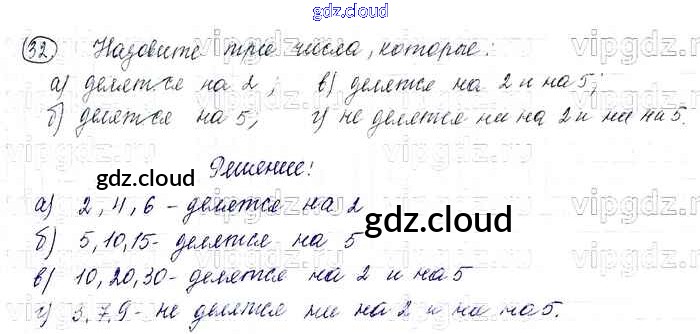 gdz.cloud
32 Назовите три числа, которые:
а) делятся на 2; в) делятся на 2 и на 5;
б) делятся на 5; г) не делятся ни на 2 и ни на 5.
Решение!
а) 2, 4, 6 - делятся на 2
б) 5, 10, 15 - делятся на 5
в) 10, 20, 30 - делятся на 2 и на 5
г) 3, 7, 9 - не делятся ни на 2 и ни на 5.
gdz.cloud
gdz.cloud
vipgdz
vipgdz
vipgdz
vipgdz